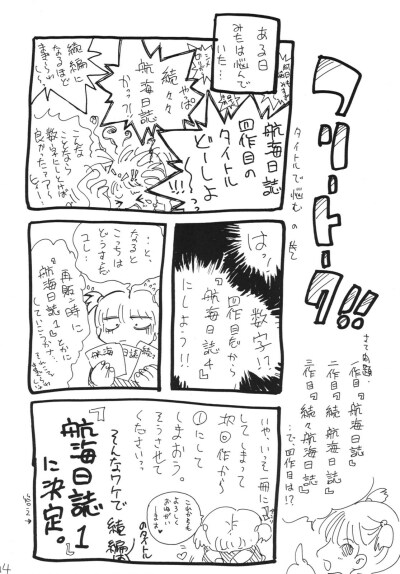 フリートーク!!
タイトルで悩むの巻
さて問題.
一作目『航海日誌』
二作目『続 航海日誌』
三作目『続々航海日誌』
…で、四作目は!?
ある日
みたは悩んで
いた…
航海日誌
四作目の
タイトル
どーしよ
やっぱ
続々々
航海日誌
かっ?!
続編に
なるほど
こんな
ことなら
数字にしとけば
良かったァァ
はっ
数字!?
四作目だから
『航海日誌4』
にしよう!!
…と、
なると
こっちは
どうすんだ
コレ…
再販時に
『航海日誌1』とかに
航海
日誌
続
いや、いっそ一冊に
してしまって
次回作から
①にして
しまおう。
そうさせて
ください…
これからも
よろしく
おねがい
します
そんなワケで続編の
タイトル
『航海日誌1』
に決定。
14